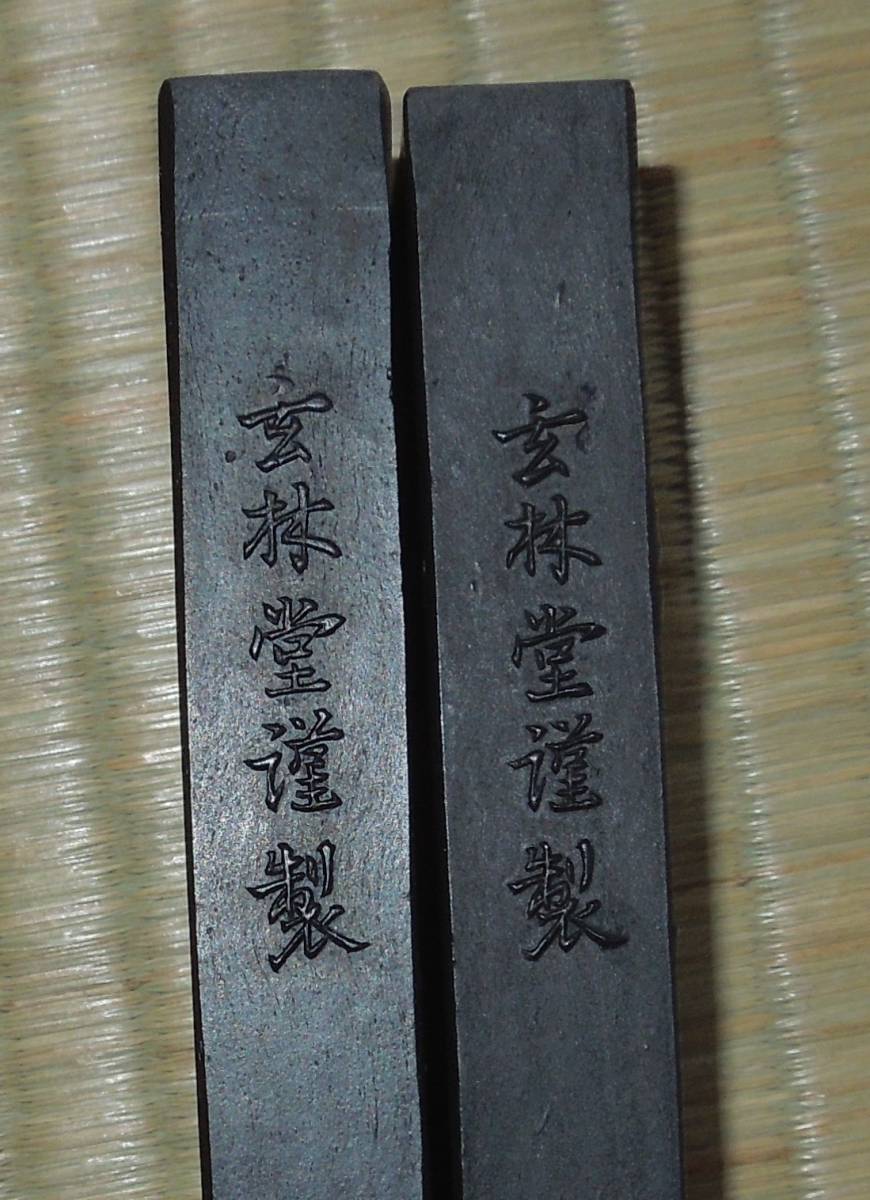 玄林堂謹製
玄林堂謹製